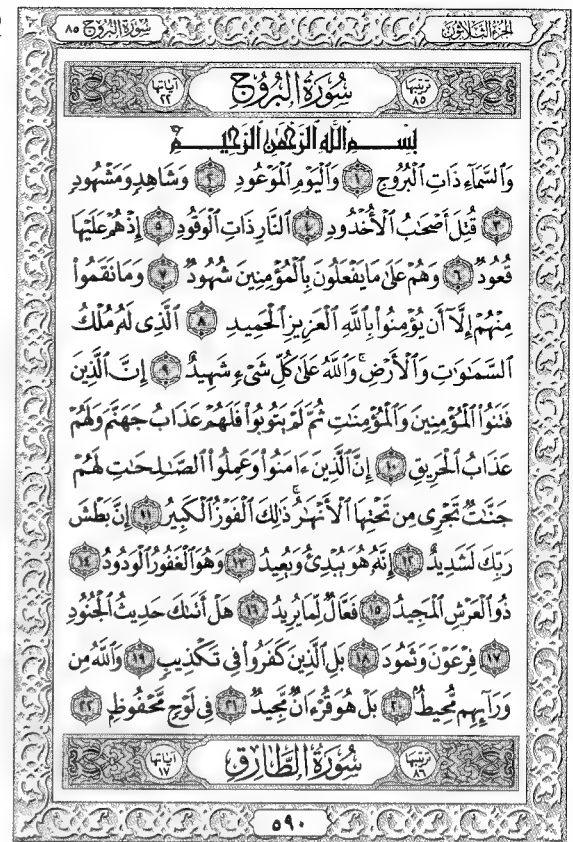 الجزء الثلاثون سورة البروج ٨٥
ترتيبها ٨٥ سُورَةُ البُرُوجِ آياتها ٢٢
بِسْمِ اللَّهِ الرَّحْمَٰنِ الرَّحِيمِ
وَٱلسَّمَآءِ ذَاتِ ٱلْبُرُوجِ ١ وَٱلْيَوْمِ ٱلْمَوْعُودِ ٢ وَشَاهِدٍ وَمَشْهُودٍ
٣ قُتِلَ أَصْحَٰبُ ٱلْأُخْدُودِ ٤ ٱلنَّارِ ذَاتِ ٱلْوَقُودِ ٥ إِذْ هُمْ عَلَيْهَا
قُعُودٌ ٦ وَهُمْ عَلَىٰ مَا يَفْعَلُونَ بِٱلْمُؤْمِنِينَ شُهُودٌ ٧ وَمَا نَقَمُوا۟
مِنْهُمْ إِلَّآ أَن يُؤْمِنُوا۟ بِٱللَّهِ ٱلْعَزِيزِ ٱلْحَمِيدِ ٨ ٱلَّذِى لَهُۥ مُلْكُ
ٱلسَّمَٰوَٰتِ وَٱلْأَرْضِ ۚ وَٱللَّهُ عَلَىٰ كُلِّ شَىْءٍ شَهِيدٌ ٩ إِنَّ ٱلَّذِينَ
فَتَنُوا۟ ٱلْمُؤْمِنِينَ وَٱلْمُؤْمِنَٰتِ ثُمَّ لَمْ يَتُوبُوا۟ فَلَهُمْ عَذَابُ جَهَنَّمَ وَلَهُمْ
عَذَابُ ٱلْحَرِيقِ ١٠ إِنَّ ٱلَّذِينَ ءَامَنُوا۟ وَعَمِلُوا۟ ٱلصَّٰلِحَٰتِ لَهُمْ
جَنَّٰتٌ تَجْرِى مِن تَحْتِهَا ٱلْأَنْهَٰرُ ۚ ذَٰلِكَ ٱلْفَوْزُ ٱلْكَبِيرُ ١١ إِنَّ بَطْشَ
رَبِّكَ لَشَدِيدٌ ١٢ إِنَّهُۥ هُوَ يُبْدِئُ وَيُعِيدُ ١٣ وَهُوَ ٱلْغَفُورُ ٱلْوَدُودُ ١٤
ذُو ٱلْعَرْشِ ٱلْمَجِيدُ ١٥ فَعَّالٌ لِّمَا يُرِيدُ ١٦ هَلْ أَتَىٰكَ حَدِيثُ ٱلْجُنُودِ
١٧ فِرْعَوْنَ وَثَمُودَ ١٨ بَلِ ٱلَّذِينَ كَفَرُوا۟ فِى تَكْذِيبٍ ١٩ وَٱللَّهُ مِن
وَرَآئِهِم مُّحِيطٌۢ ٢٠ بَلْ هُوَ قُرْءَانٌ مَّجِيدٌ ٢١ فِى لَوْحٍ مَّحْفُوظٍۭ ٢٢
ترتيبها ٨٦ سُورَةُ الطَّارِقِ آياتها ١٧
٥٩٠